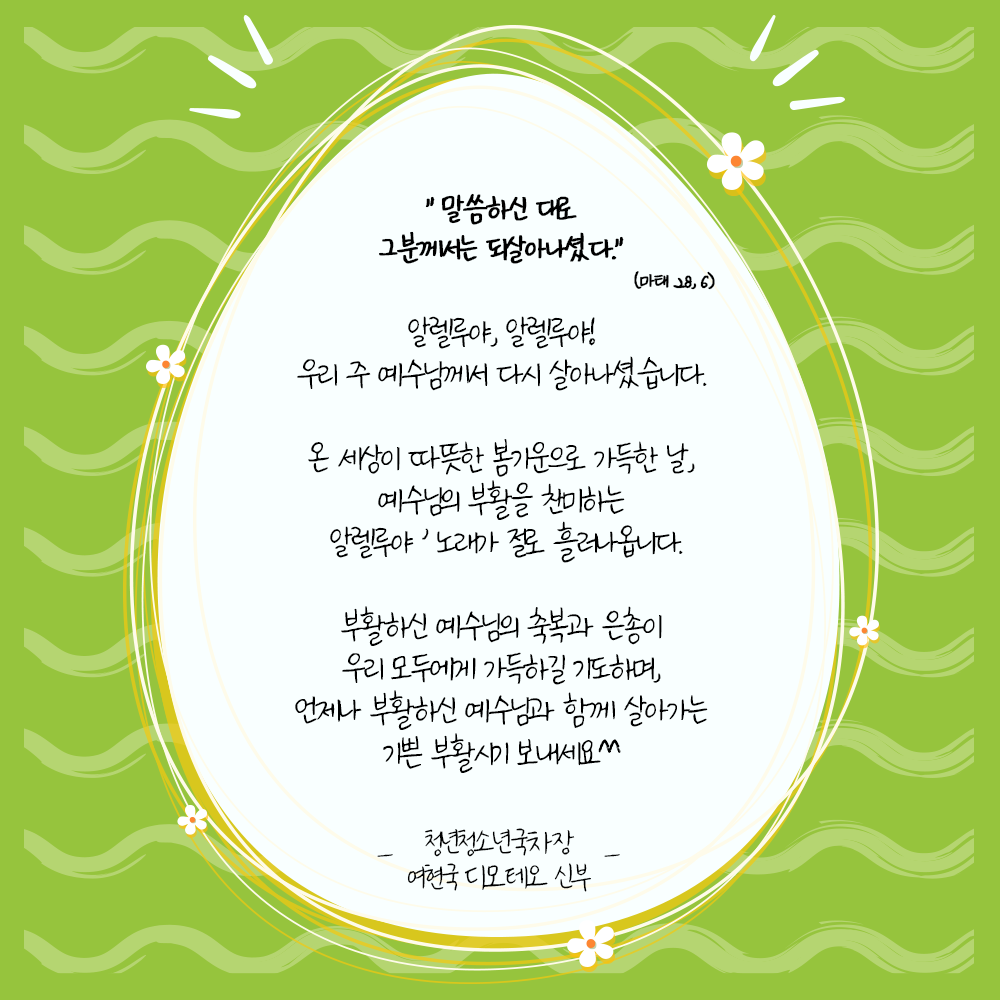 "말씀하신 대로
그분께서는 되살아나셨다."
(마태 28, 6)
알렐루야, 알렐루야!
우리 주 예수님께서 다시 살아나셨습니다.
온 세상이 따뜻한 봄기운으로 가득한 날,
예수님의 부활을 찬미하는
알렐루야 ' 노래가 절로 흘러나옵니다.
부활하신 예수님의 축복과 은총이
우리 모두에게 가득하길 기도하며,
언제나 부활하신 예수님과 함께 살아가는
기쁜 부활시기 보내세요^^
_ 청년청소년국차장 _
여현국 디모테오 신부